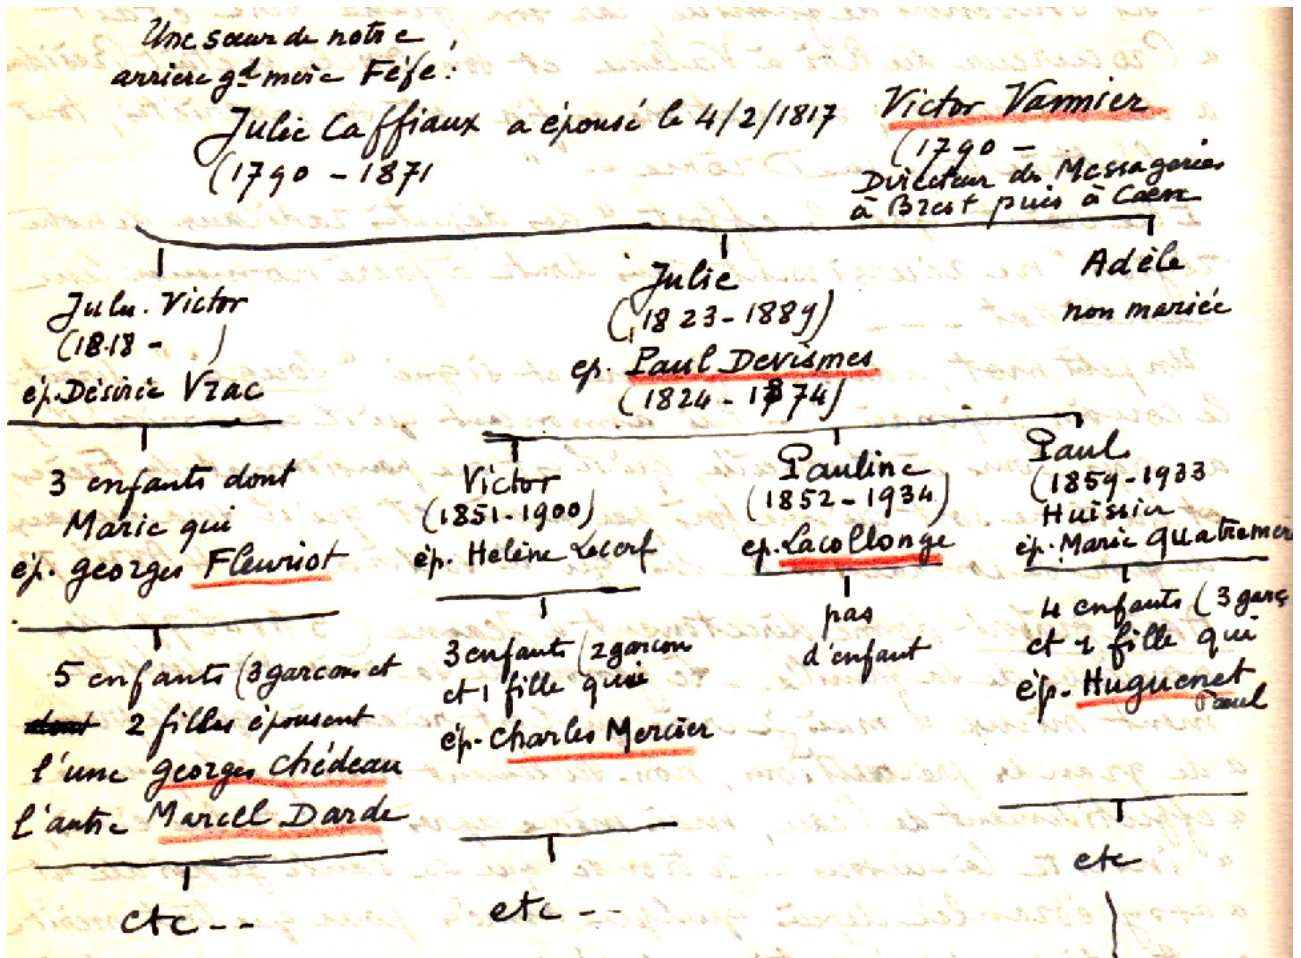 Une sœur de notre
arriere gd mere Féfé :
Julie Caffiaux a épousé le 4/2/1817
(1790 - 1871
Victor Vannier
(1790 -
Directeur des Messageries
à Brest puis à Caen
Julu. Victor
(1818 -      )
ép. Désirée Vrac
3 enfants dont
Marie qui
ép. Georges Fleuriot
5 enfants (3 garcons et
2 filles épousent
l'une Georges Chédeau
l'autre Marcel Darde
etc --
Julie
(1823 - 1889)
ep. Paul Devismes
(1824 - 1874)
Victor
(1851 - 1900)
ép. Hélène Lecerf
3 enfants (2 garcons
et 1 fille qui
ép. Charles Mercier
etc --
Pauline
(1852 - 1934)
ep. Lacollonge
pas
d'enfant
Paul
(1859 - 1933
Huissier
ép. Marie Quatremer
4 enfants (3 garç
et 1 fille qui
ép. Huguenet
Paul
etc
Adèle
non mariée